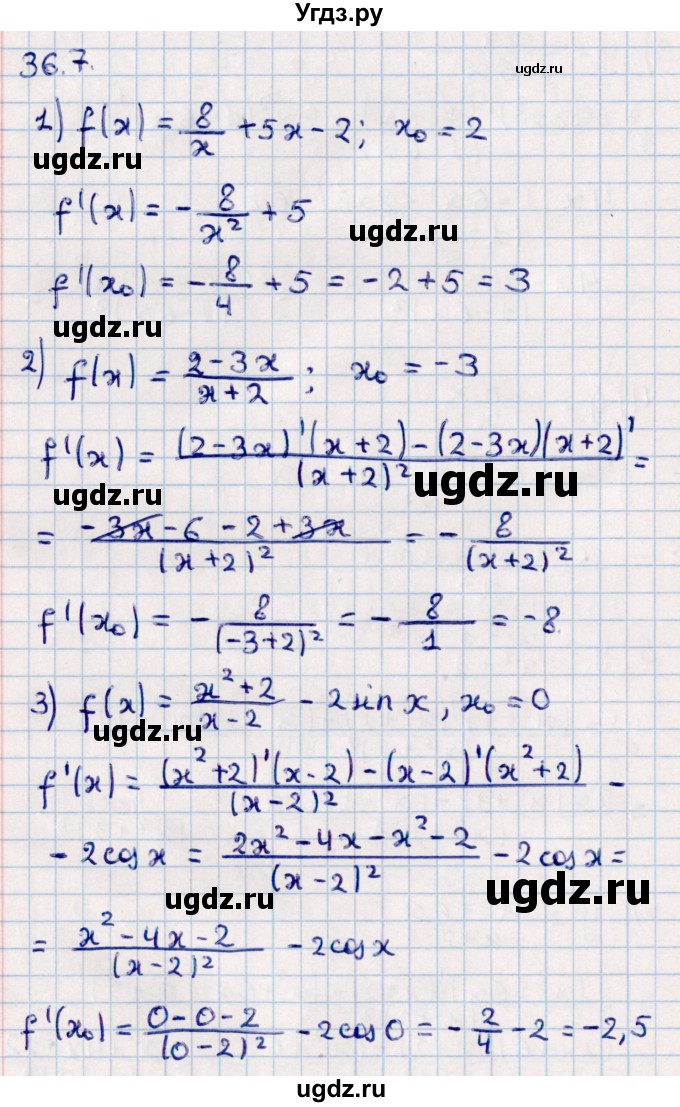 Угдз.ру
36.7.
ugdz.ru
1) f(x) = 8/x + 5x - 2; x₀ = 2
ugdz.ru
f'(x) = - 8/x² + 5
ugdz.ru
f'(x₀) = - 8/4 + 5 = -2 + 5 = 3
ugdz.ru
2) f(x) = (2 - 3x)/(x + 2); x₀ = -3
f'(x) = ((2 - 3x)'(x + 2) - (2 - 3x)(x + 2)')/(x + 2)² =
ugdz.ru
= (-3x - 6 - 2 + 3x)/(x + 2)² = - 8/(x + 2)²
f'(x₀) = - 8/(-3 + 2)² = - 8/1 = -8.
3) f(x) = (x² + 2)/(x - 2) - 2 sin x, x₀ = 0
ugdz.ru
f'(x) = ((x² + 2)'(x - 2) - (x - 2)'(x² + 2))/(x - 2)² -
- 2 cos x = (2x² - 4x - x² - 2)/(x - 2)² - 2 cos x =
ugdz.ru
ugdz.ru
= (x² - 4x - 2)/(x - 2)² - 2 cos x
f'(x₀) = (0 - 0 - 2)/(0 - 2)² - 2 cos 0 = - 2/4 - 2 = -2,5
ugdz.ru
ugdz.ru